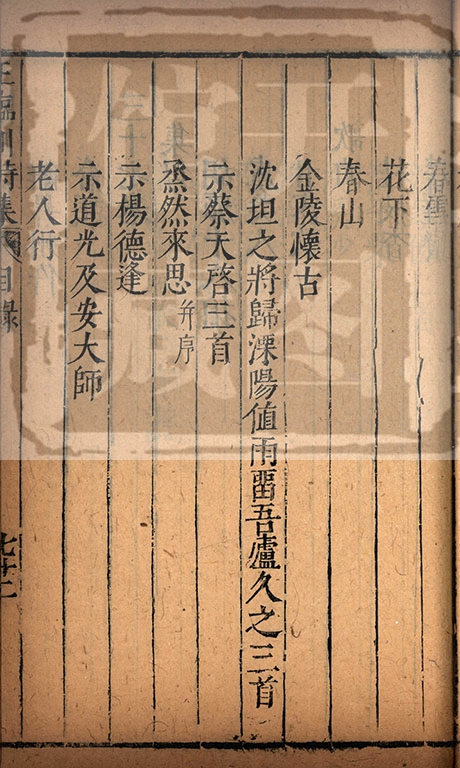 春雪
花下
春山
金陵懷古
沈坦之將歸溧陽值雨畱吾廬久之三首
示蔡天啓三首
烝然來思并序
示楊德逢
示道光及安大師
老人行
詩集 目錄